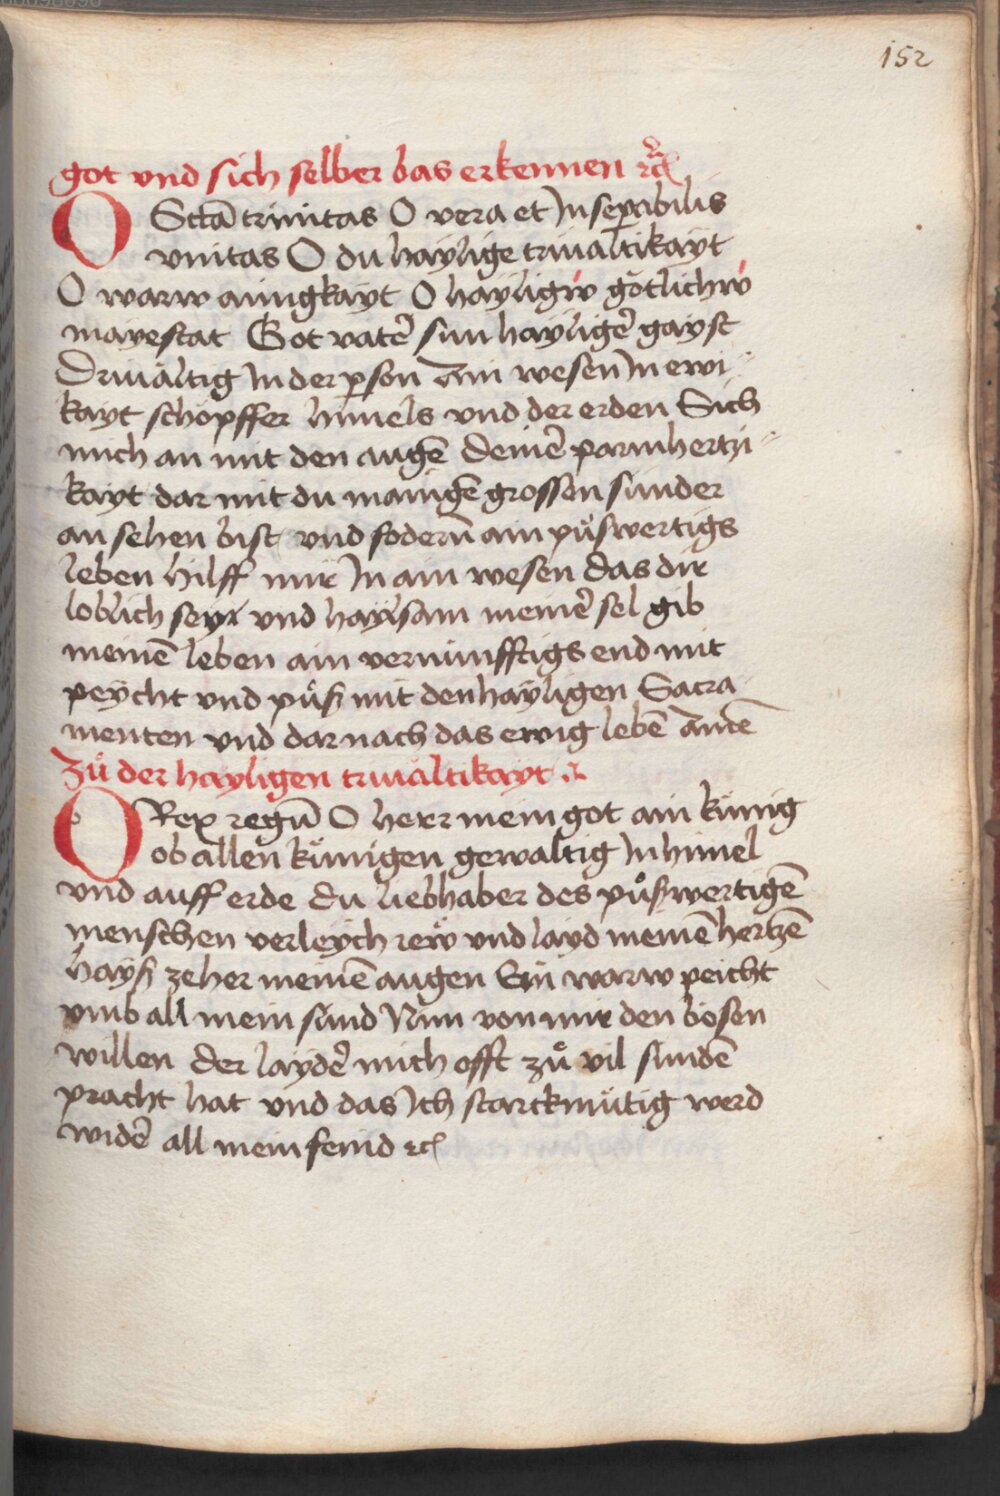 152
got vnd sich selber bas erkennen ꝛc
O Sctā trinitas O vera et Inseꝑabilis
vnitas O du haylige triualtikayt
O warw ainigkayt O hayligiv götlichiv
mayestat Got vater̄ sun hayliger̄ gayst
Driuältig In der ꝑson Ain wesen In ewi-
kayt schöpffer himels vnd der erden Sich
mich an mit den augē deiner̄ parmhertzi-
kayt dar mit du mānigē grossen sunder
an sehen bist vnd fodern̄ ain pußwertigs
leben Hilff mir In ain wesen das dir
loblich sey vnd haylsam meiner̄ sel gib
meinē leben ain vernunfftigs end mit
peycht vnd půß mit den hayligen Sacra-
menten vnd dar nach das ewig lebē Amē
Zů der hayligen triualtikayt
O Rex regū O herr mein got ain künig
ob allen künigen gewaltig In himel
vnd auff erde du liebhaber des půßwertigē
menschen verleych rew vnd layd meinē hertzē
hayß zeher meinē augen Ein warw peicht
vmb all mein sünd Nim von mir den bösen
willen der layder̄ mich offt zů vil sundē
pracht hat vnd das Ich starckmütig werd
wider̄ all mein feind ꝛc